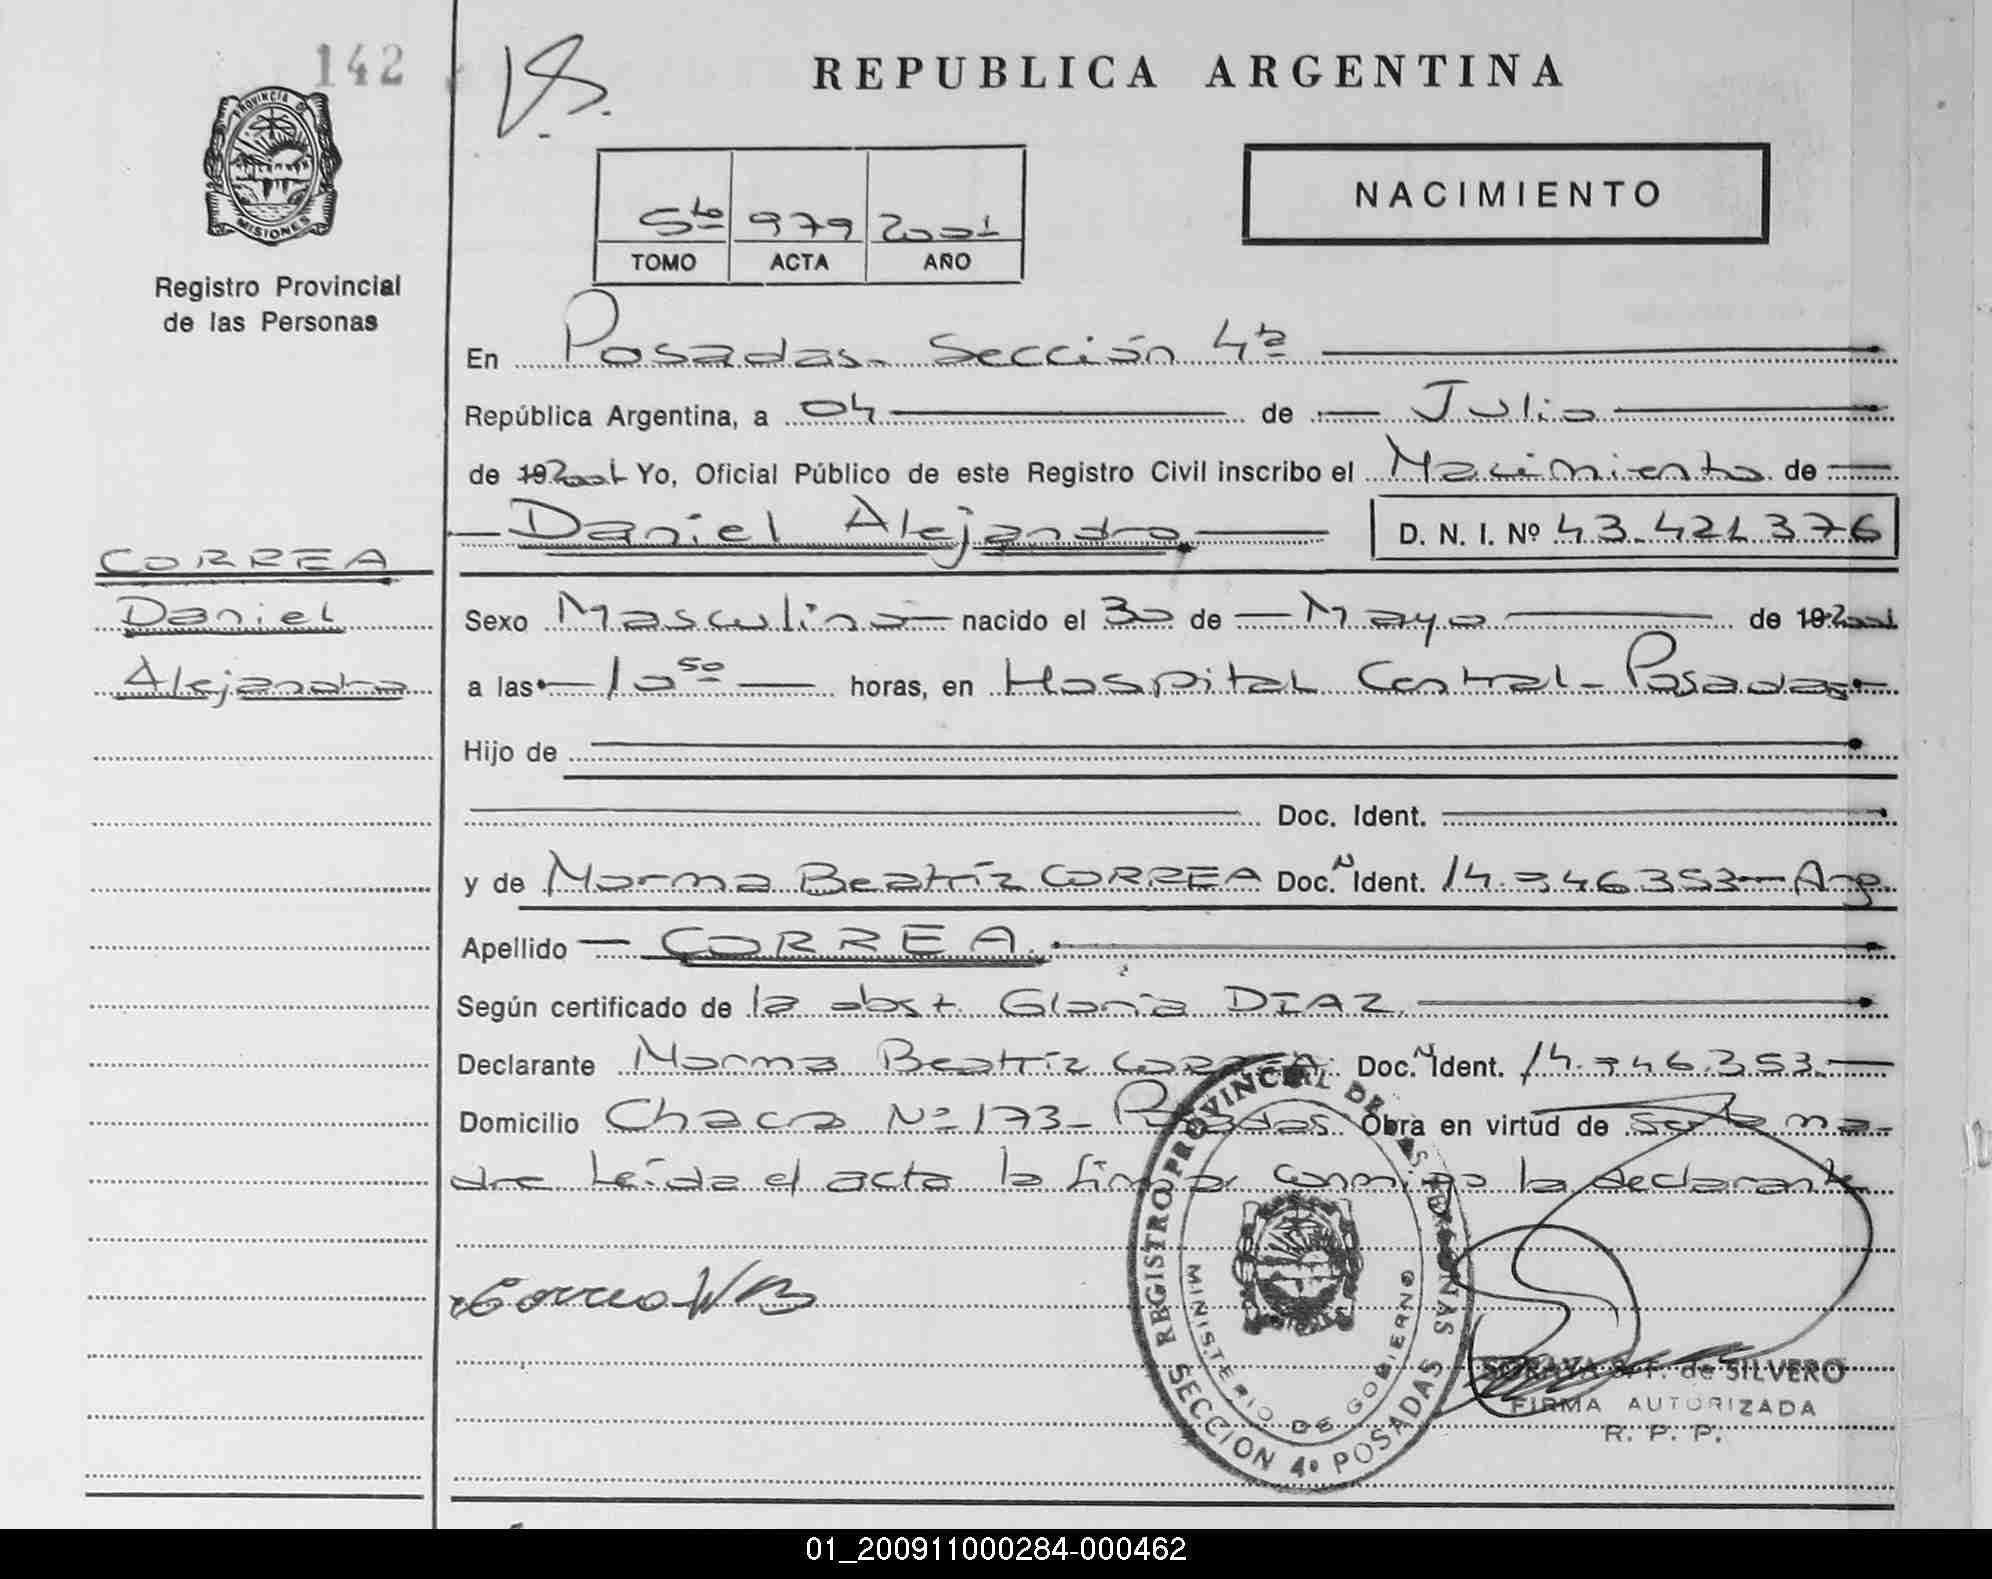 142
REPUBLICA ARGENTINA
PROVINCIA D
MISIONES
Registro Provincial
de las Personas
5to 979 2001
TOMO ACTA AÑO
NACIMIENTO
En Posadas. Sección 4ta
República Argentina, a 04 de Julio
de 19 2001 Yo, Oficial Público de este Registro Civil inscribo el Nacimiento de
Daniel Alejandro D. N. I. Nº 43.421.376
CORREA
Daniel
Alejandro
Sexo Masculino nacido el 30 de Mayo de 19 2001
a las 10 50 horas, en Hospital Central - Posadas
Hijo de
Doc. Ident.
y de Norma Beatríz CORREA Doc. N Ident. 14.946.353 - Arg.
Apellido CORREA
Según certificado de la obst. Gloria DIAZ.
Declarante Norma Beatríz CORREA. Doc. N Ident. 14.946.353.
Domicilio Chacra Nº 173 - Posadas. Obra en virtud de ser la ma-
dre Leída el acta la firma conmigo la declarante
Correa N B
REGISTRO PROVINCIAL DE LAS PERSONAS
MINISTERIO DE GOBIERNO
SECCION 4º POSADAS
SORAYA S. F. de SILVERO
FIRMA AUTORIZADA
R. P. P.
01_200911000284-000462